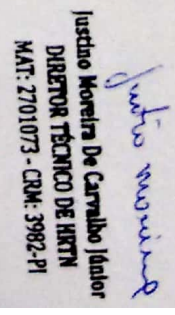 Justino Moreira
Justino Moreira De Carvalho Júnior
DIRETOR TÉCNICO DE HRTN
MAT: 2701073 - CRM: 3982-PI